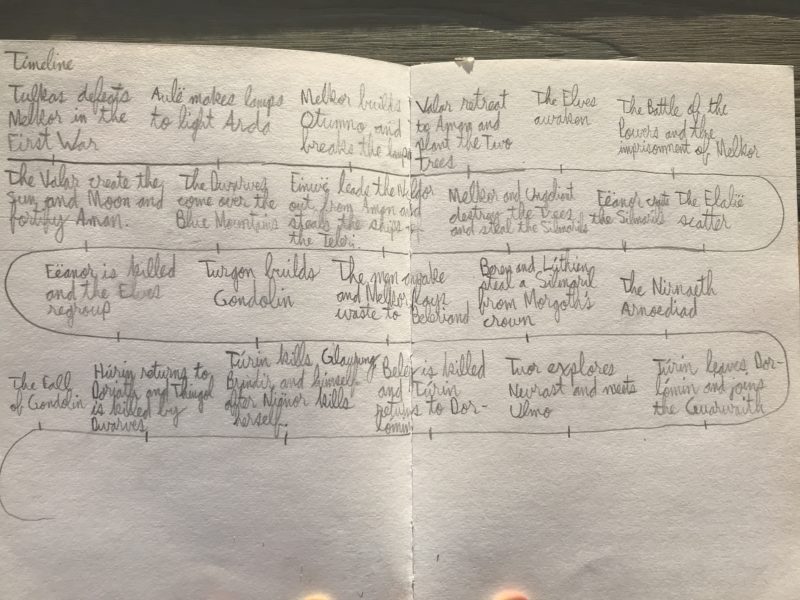 Timeline
Tulkas defeats
Melkor in the
First War
Aulë makes lamps
to light Arda
Melkor builds
Utumno and
breaks the lamps
Valar retreat
to Aman and
plant the Two
Trees
The Elves
awaken
The Battle of the
Powers and the
imprisonment of Melkor
The Valar create the
Sun and Moon and
fortify Aman.
The Dwarves
come over the
Blue Mountains
leads the Noldor
out from Aman and
steals the ships of
the Teleri.
Melkor and Ungoliant
destroy the Trees
and steal the Silmarils
Fëanor
the Silmarils
The
scatter
Fëanor is killed
and the Elves
regroup
Turgon builds
Gondolin
The men awake
and Melkor lays
waste to Beleriand
Beren and Lúthien
steal a Silmaril
from Morgoth's
crown
The Nirnaeth
Arnoediad
The Fall
of Gondolin
Húrin returns to
Doriath and Thingol
is killed by
Dwarves
Túrin kills Glaurung,
Brandir, and himself
after Niënor kills
herself.
Beleg is killed
and Túrin
returns to Dor-
lómin
Tuor explores
Nevrast and meets
Ulmo
Túrin leaves Dor-
lómin and joins
the Gaurwaith